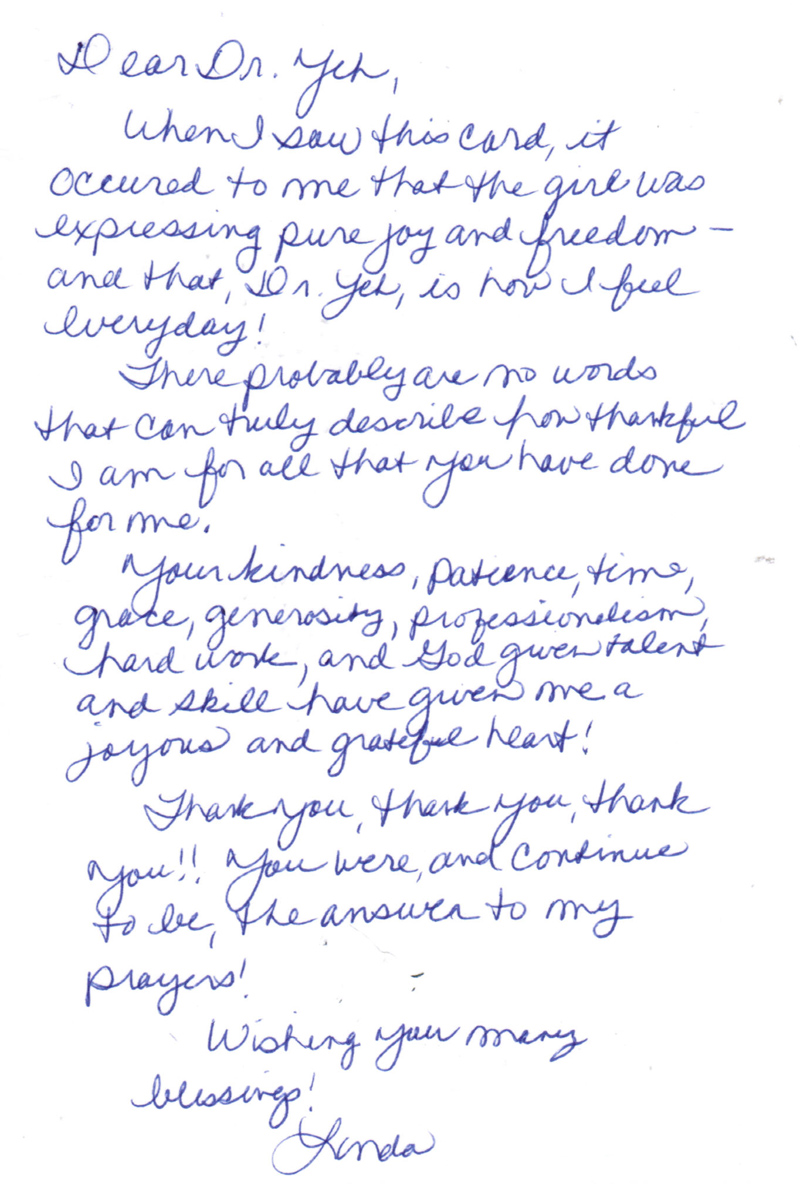 Dear Dr. Yeh,
When I saw this card, it
occured to me that the girl was
expressing pure joy and freedom –
and that, Dr. Yeh, is how I feel
everyday!
There probably are no words
that can truly describe how thankful
I am for all that you have done
for me.
Your kindness, patience, time,
grace, generosity, professionalism,
hard work, and God given talent
and skill have given me a
joyous and grateful heart!
Thank you, thank you, thank
you!! You were, and continue
to be, the answer to my
prayers!
Wishing you many
blessings!
Linda